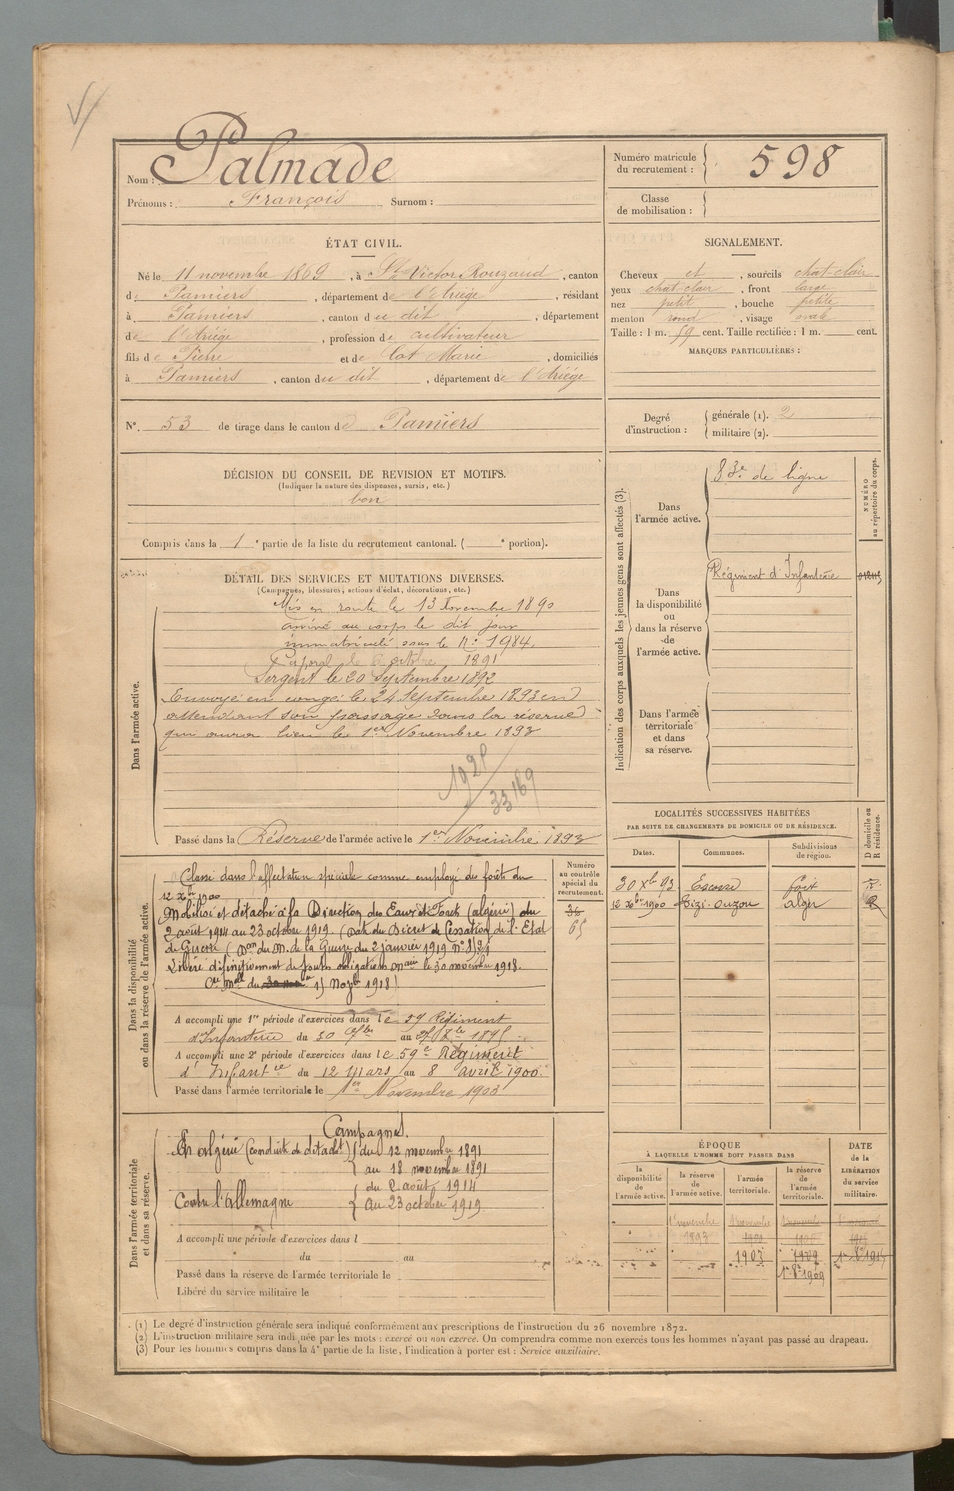 Nom : Palmade
Prénoms : François Surnom :
Numéro matricule du recrutement : 598
Classe de mobilisation :
ÉTAT CIVIL.
Né le 11 novembre 1869, à St Victor Rouzaud, canton
de Pamiers, département de l'Ariège, résidant
à Pamiers, canton du dit, département
de l'Ariège, profession de cultivateur
fils de Pierre et de Cot Marie, domiciliés
à Pamiers, canton du dit, département de l'Ariège
N° 53 de tirage dans le canton de Pamiers
SIGNALEMENT.
Cheveux et, sourcils chat-clair
yeux chat clair, front large
nez petit, bouche petite
menton rond, visage ovale
Taille : 1 m. 59 cent. Taille rectifiée : 1 m. cent.
MARQUES PARTICULIÈRES :
Degré d'instruction : générale (1). 2
militaire (2).
DÉCISION DU CONSEIL DE REVISION ET MOTIFS.
(Indiquer la nature des dispenses, sursis, etc.)
bon
Compris dans la 1e partie de la liste du recrutement cantonal. ( e portion).
DÉTAIL DES SERVICES ET MUTATIONS DIVERSES.
(Campagnes, blessures, actions d'éclat, décorations, etc.)
Dans l'armée active.
Mis en route le 13 novembre 1890
arrivé au corps le dit jour
immatriculé sous le N° 1984
Caporal 1891
Sergent le 20 Septembre 1892
Envoyé en congé le 24 Septembre 1893 en
attendant son passage dans la réserve
qui aura lieu le 1er Novembre 1893
33169
Passé dans la Réserve de l'armée active le 1er Novembre 1893
Indication des corps auxquels les jeunes gens sont affectés (3).
NUMÉRO au répertoire du corps.
Dans l'armée active.
83e de ligne
Dans la disponibilité ou dans la réserve de l'armée active.
Régiment d'Infanterie
Dans l'armée territoriale et dans sa réserve.
LOCALITÉS SUCCESSIVES HABITÉES
PAR SUITE DE CHANGEMENTS DE DOMICILE OU DE RÉSIDENCE.
Dates. Communes. Subdivisions de région. D domicile ou R résidence.
30 Xbre 93 Escosse foix
12 Xbre 1900 Tizi-Ouzou alger R
Dans la disponibilité ou dans la réserve de l'armée active.
Numéro au contrôle spécial du recrutement.
36
65
Classé dans l'affectation spéciale comme employé des forêts du
12 Xbre 1900
Mobilisé et détaché à la Direction des Eaux et Forêts (algérie) du
2 août 1914 au 23 octobre 1919. (Date du Décret de Cessation de l'Etat
de Guerre (Don du M. de la Guerre du 2 janvier 1919
Libéré définitivement de toutes obligations mres le 30 novembre 1918.
A accompli une 1re période d'exercices dans le 59 Régiment
d'Infanterie du 30 au 1895
A accompli une 2e période d'exercices dans le 59e Régiment
d'Infantie du 12 Mars au 8 avril 1900.
Passé dans l'armée territoriale le 1er Novembre 1903
Dans l'armée territoriale et dans sa réserve.
Campagnes.
En algérie (conduite de détacht) du 12 novembre 1891
au 18 novembre 1891
Contre l'Allemagne du 2 août 1914
au 23 octobre 1919
A accompli une période d'exercices dans l
du au
Passé dans la réserve de l'armée territoriale le
Libéré du service militaire le
ÉPOQUE
A LAQUELLE L'HOMME DOIT PASSER DANS
la disponibilité de l'armée active.
la réserve de l'armée active.
l'armée territoriale.
la réserve de l'armée territoriale.
DATE de la LIBÉRATION du service militaire.
1903 1909
(1) Le degré d'instruction générale sera indiqué conformément aux prescriptions de l'instruction du 26 novembre 1872.
(2) L'instruction militaire sera indiquée par les mots : exercé ou non exercé. On comprendra comme non exercés tous les hommes n'ayant pas passé au drapeau.
(3) Pour les hommes compris dans la 4e partie de la liste, l'indication à porter est : Service auxiliaire.